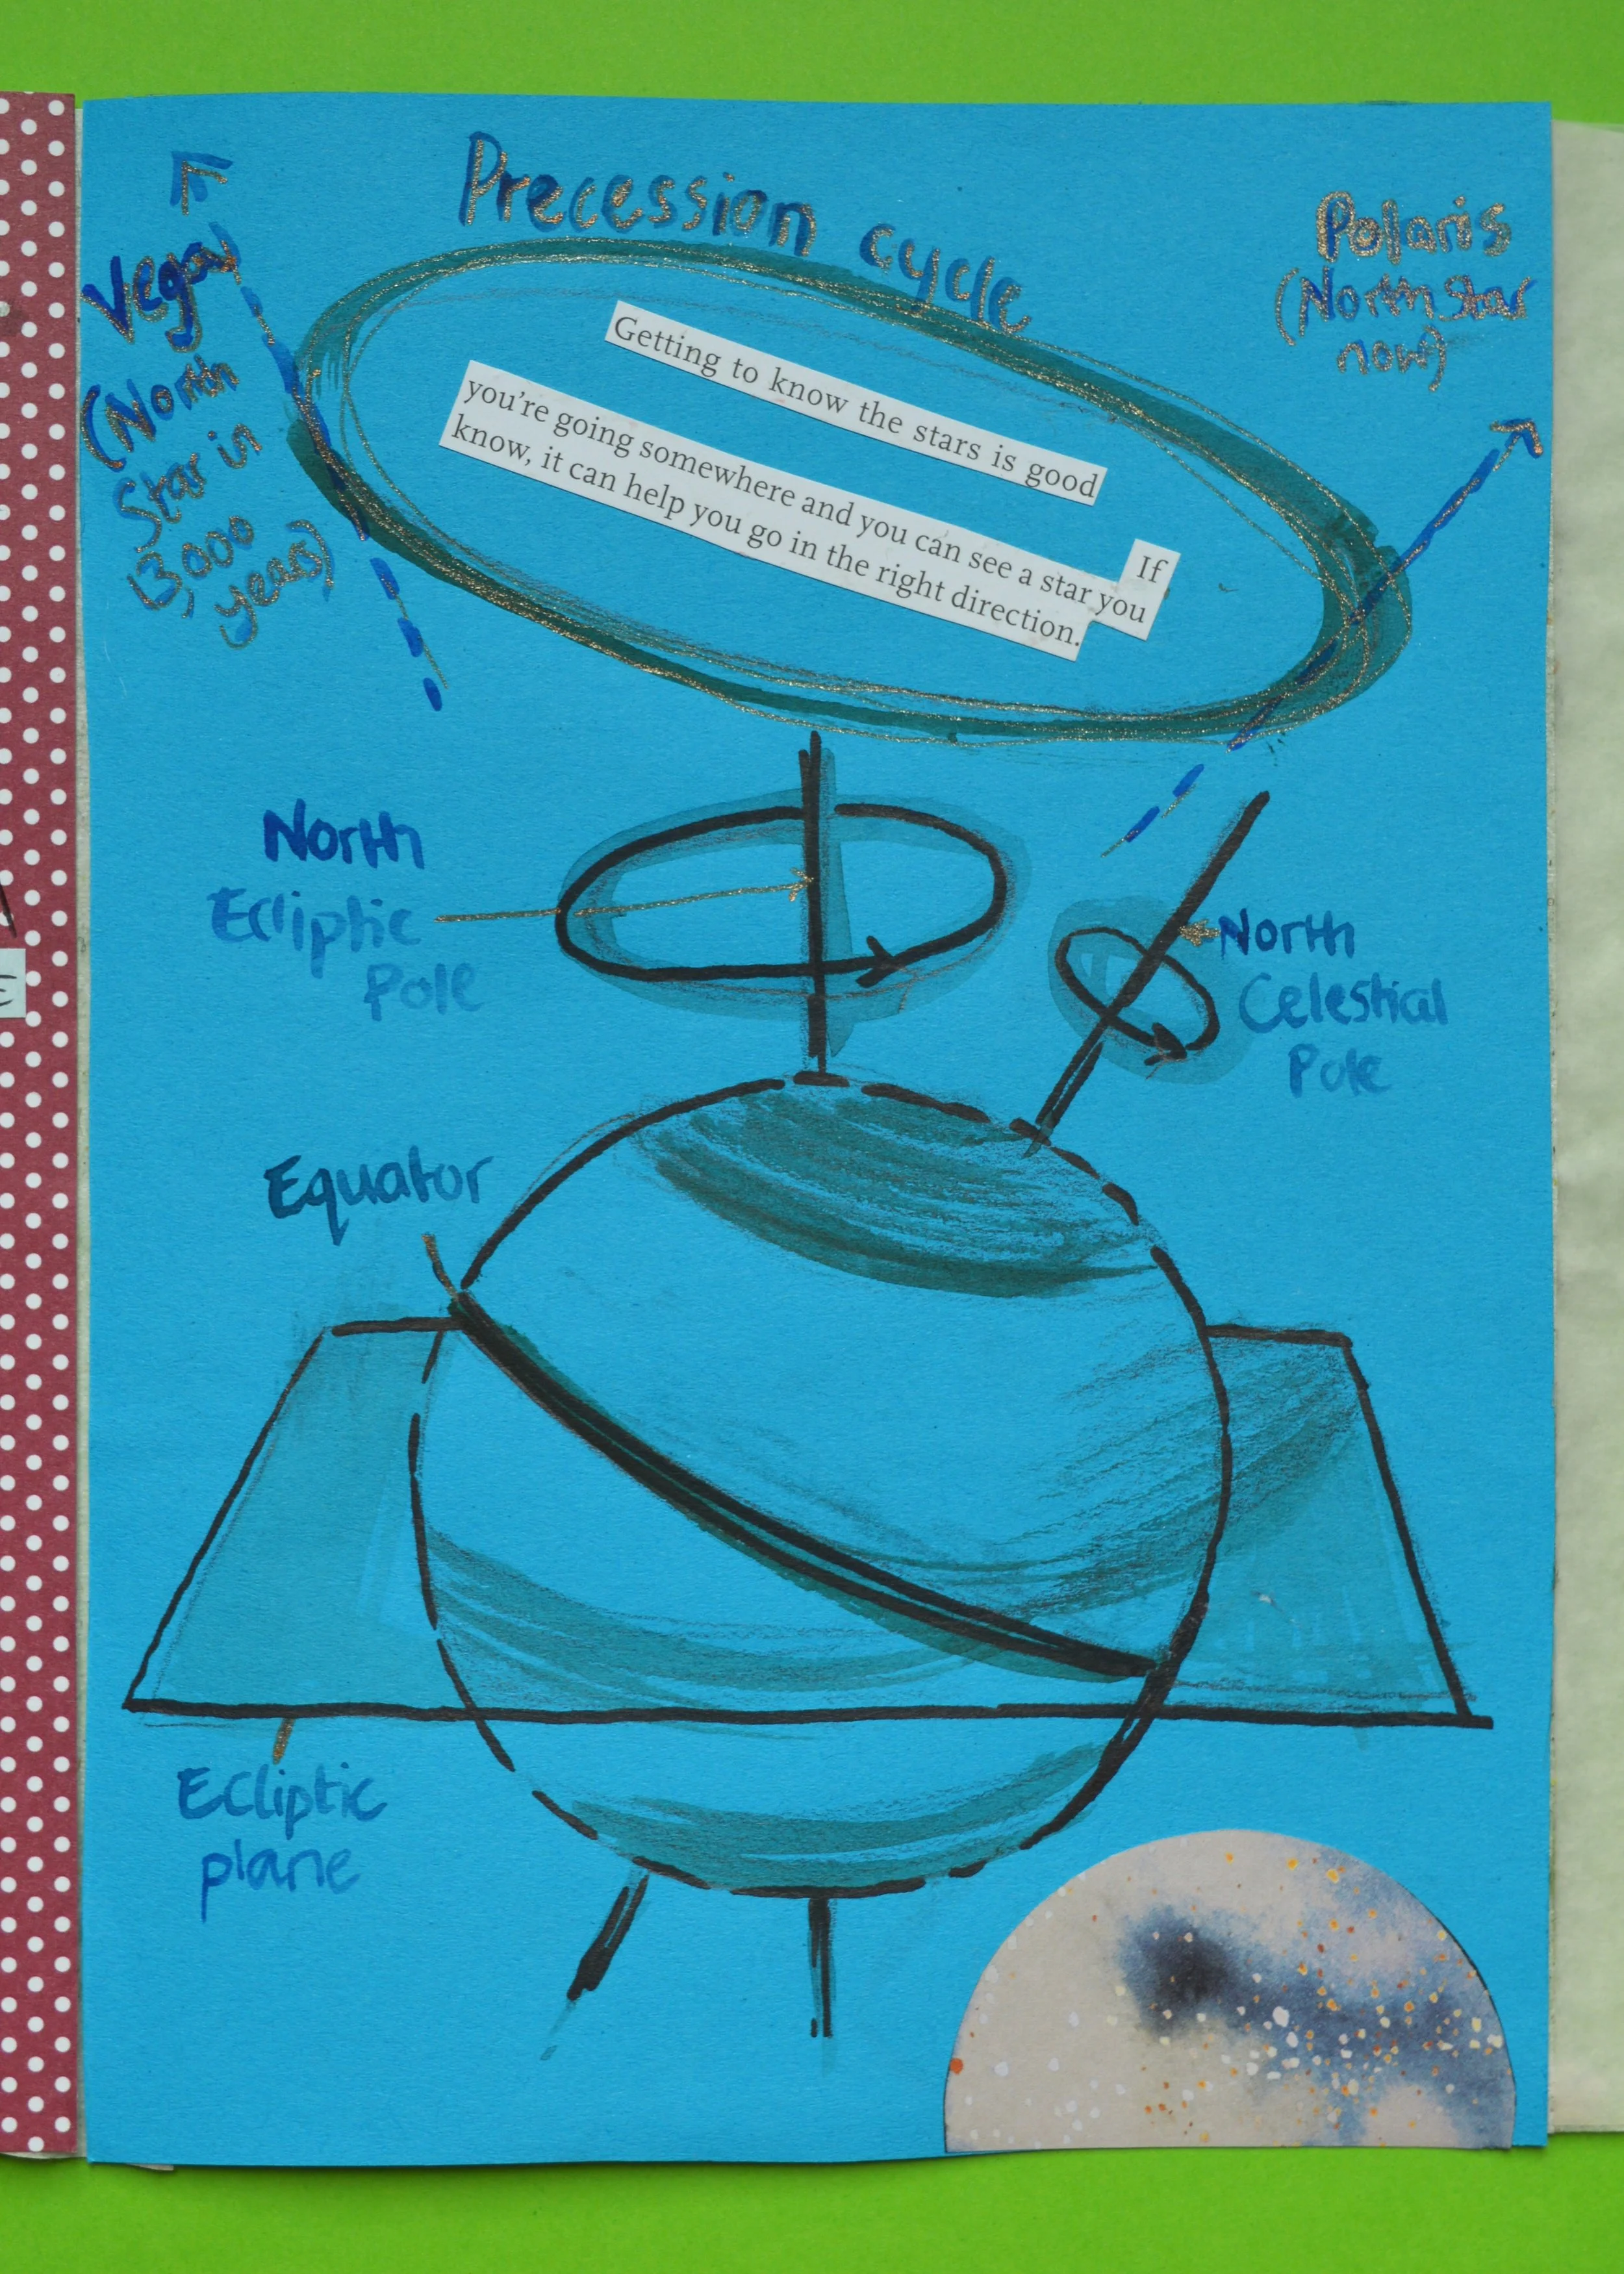 Precession cycle
Vega
(North
Star in
13,000
years)
Polaris
(North Star
now)
Getting to know the stars is good
If
you're going somewhere and you can see a star you
know, it can help you go in the right direction.
North
Ecliptic
Pole
North
Celestial
Pole
Equator
Ecliptic
plane